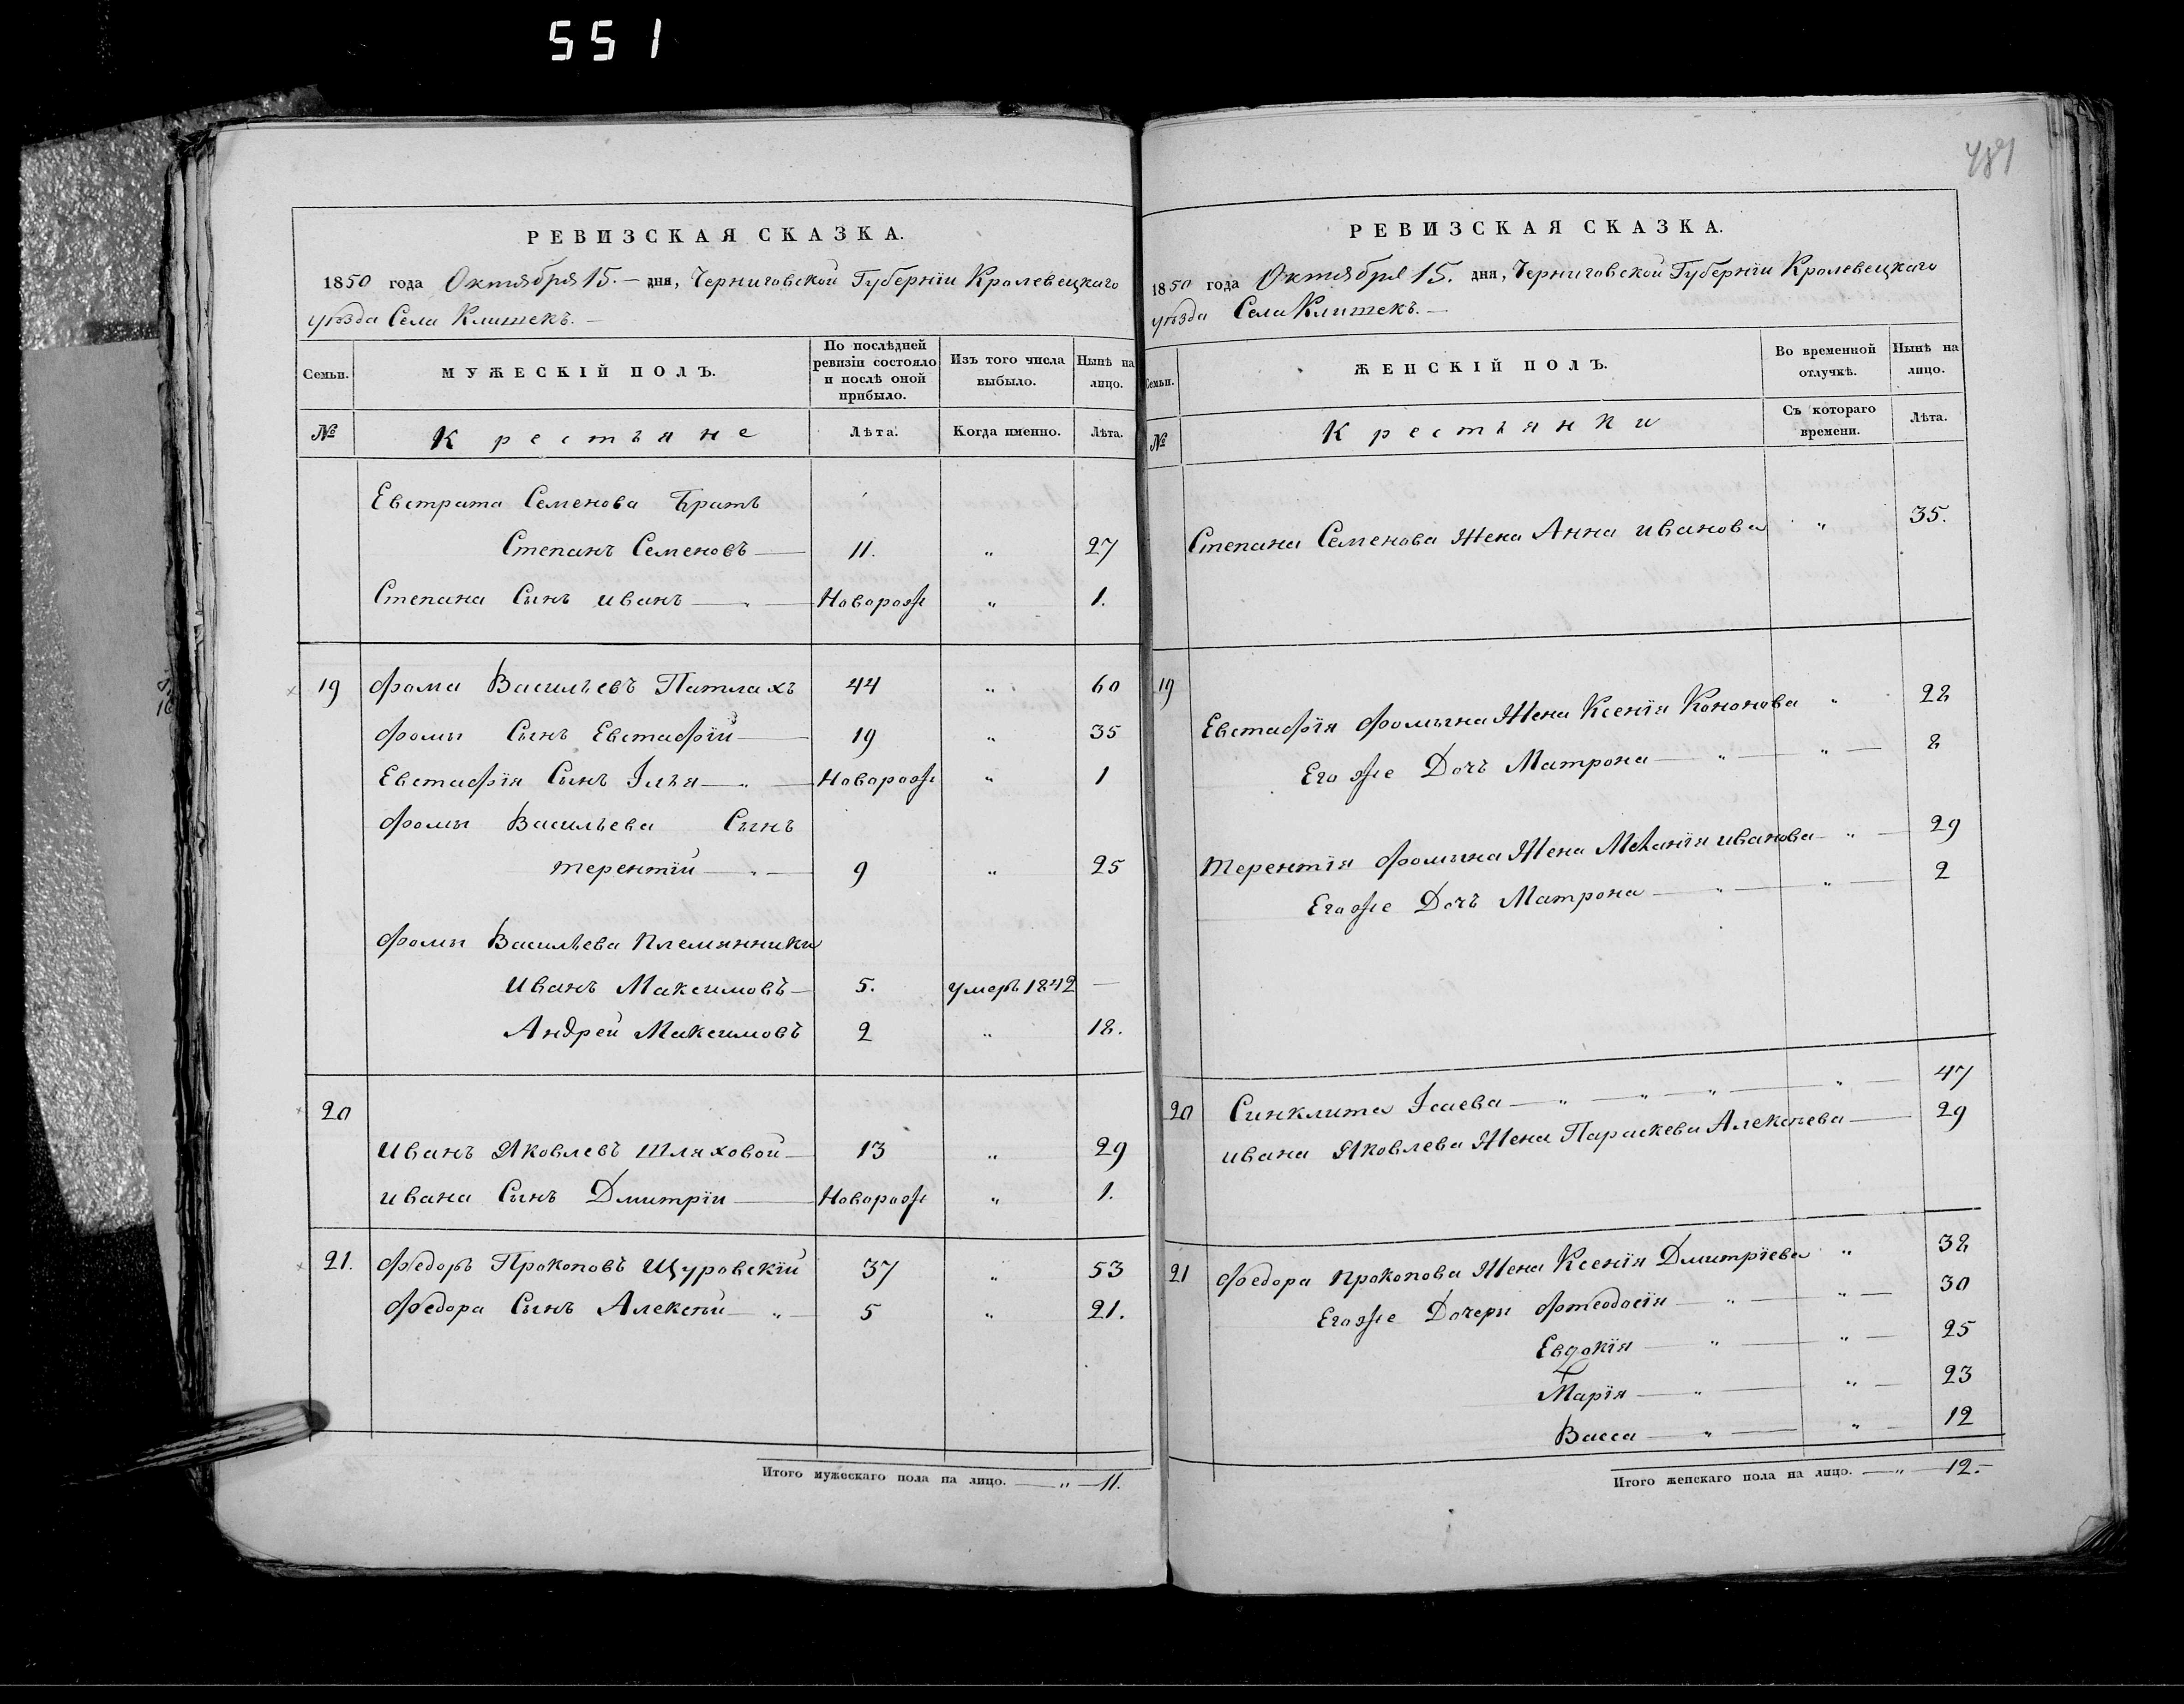 551
РЕВИЗСКАЯ СКАЗКА.
1850 года Октября 15. — дня, Черниговской Губерніи Кролевецкаго
уѣзда Села Клишекъ. —
Семьи.
МУЖЕСКІЙ ПОЛЪ.
По послѣдней
ревизіи состояло
и послѣ оной
прибыло.
Изъ того числа
выбыло.
Нынѣ на
лицо.
№
Крестьяне
Лѣта.
Когда именно.
Лѣта.
Евстрата Семенова Братъ
Степанъ Семеновъ — 11. " 27
Степана Сынъ Иванъ — " — Новорож " 1.
19 Фома Васильевъ Патлахъ 44 " 60
Фомы Сынъ Евстафій — 19 " 35
Евстафія Сынъ Илья — " — Новорож " 1
Фомы Васильева Сынъ
Терентій — " — 9 " 25
Фомы Васильева Племянники
Иванъ Максимовъ — 5. умеръ 1842 —
Андрей Максимовъ 2 " 18.
20
Иванъ Яковлевъ Шляховой — 13 " 29
Ивана Сынъ Дмитрій — Новорож " 1.
21. Федоръ Прокоповъ Щуровскій 37 " 53
Федора Сынъ Алексѣй — " — 5 " 21.
Итого мужескаго пола на лицо. — " — 11.
481
РЕВИЗСКАЯ СКАЗКА.
1850 года Октября 15. дня, Черниговской Губерніи Кролевецкаго
уѣзда Села Клишекъ. —
Семьи.
ЖЕНСКІЙ ПОЛЪ.
Во временной
отлучкѣ.
Нынѣ на
лицо.
№
Крестьянки
Съ котораго
времени.
Лѣта.
Степана Семенова Жена Анна Иванова " 35.
19
Евстафія Фомина Жена Ксенія Кононова " 28
Его же Дочь Матрона — " — " — 8
Терентія Фомина Жена Меланія Иванова — " — 29
Его же Дочь Матрона — " — " — 2
20 Синклита Ісаева — " — " — " — " — 47
Ивана Яковлева Жена Параскева Алексѣева — 29
21 Федора Прокопова Жена Ксенія Дмитріева " 38
Его же Дочери Фтеодосія — " — " — 30
Евдокія — " — " — 25
Марія — " — " — 23
Васса — " — " — 12
Итого женскаго пола на лицо. — " — 12. —